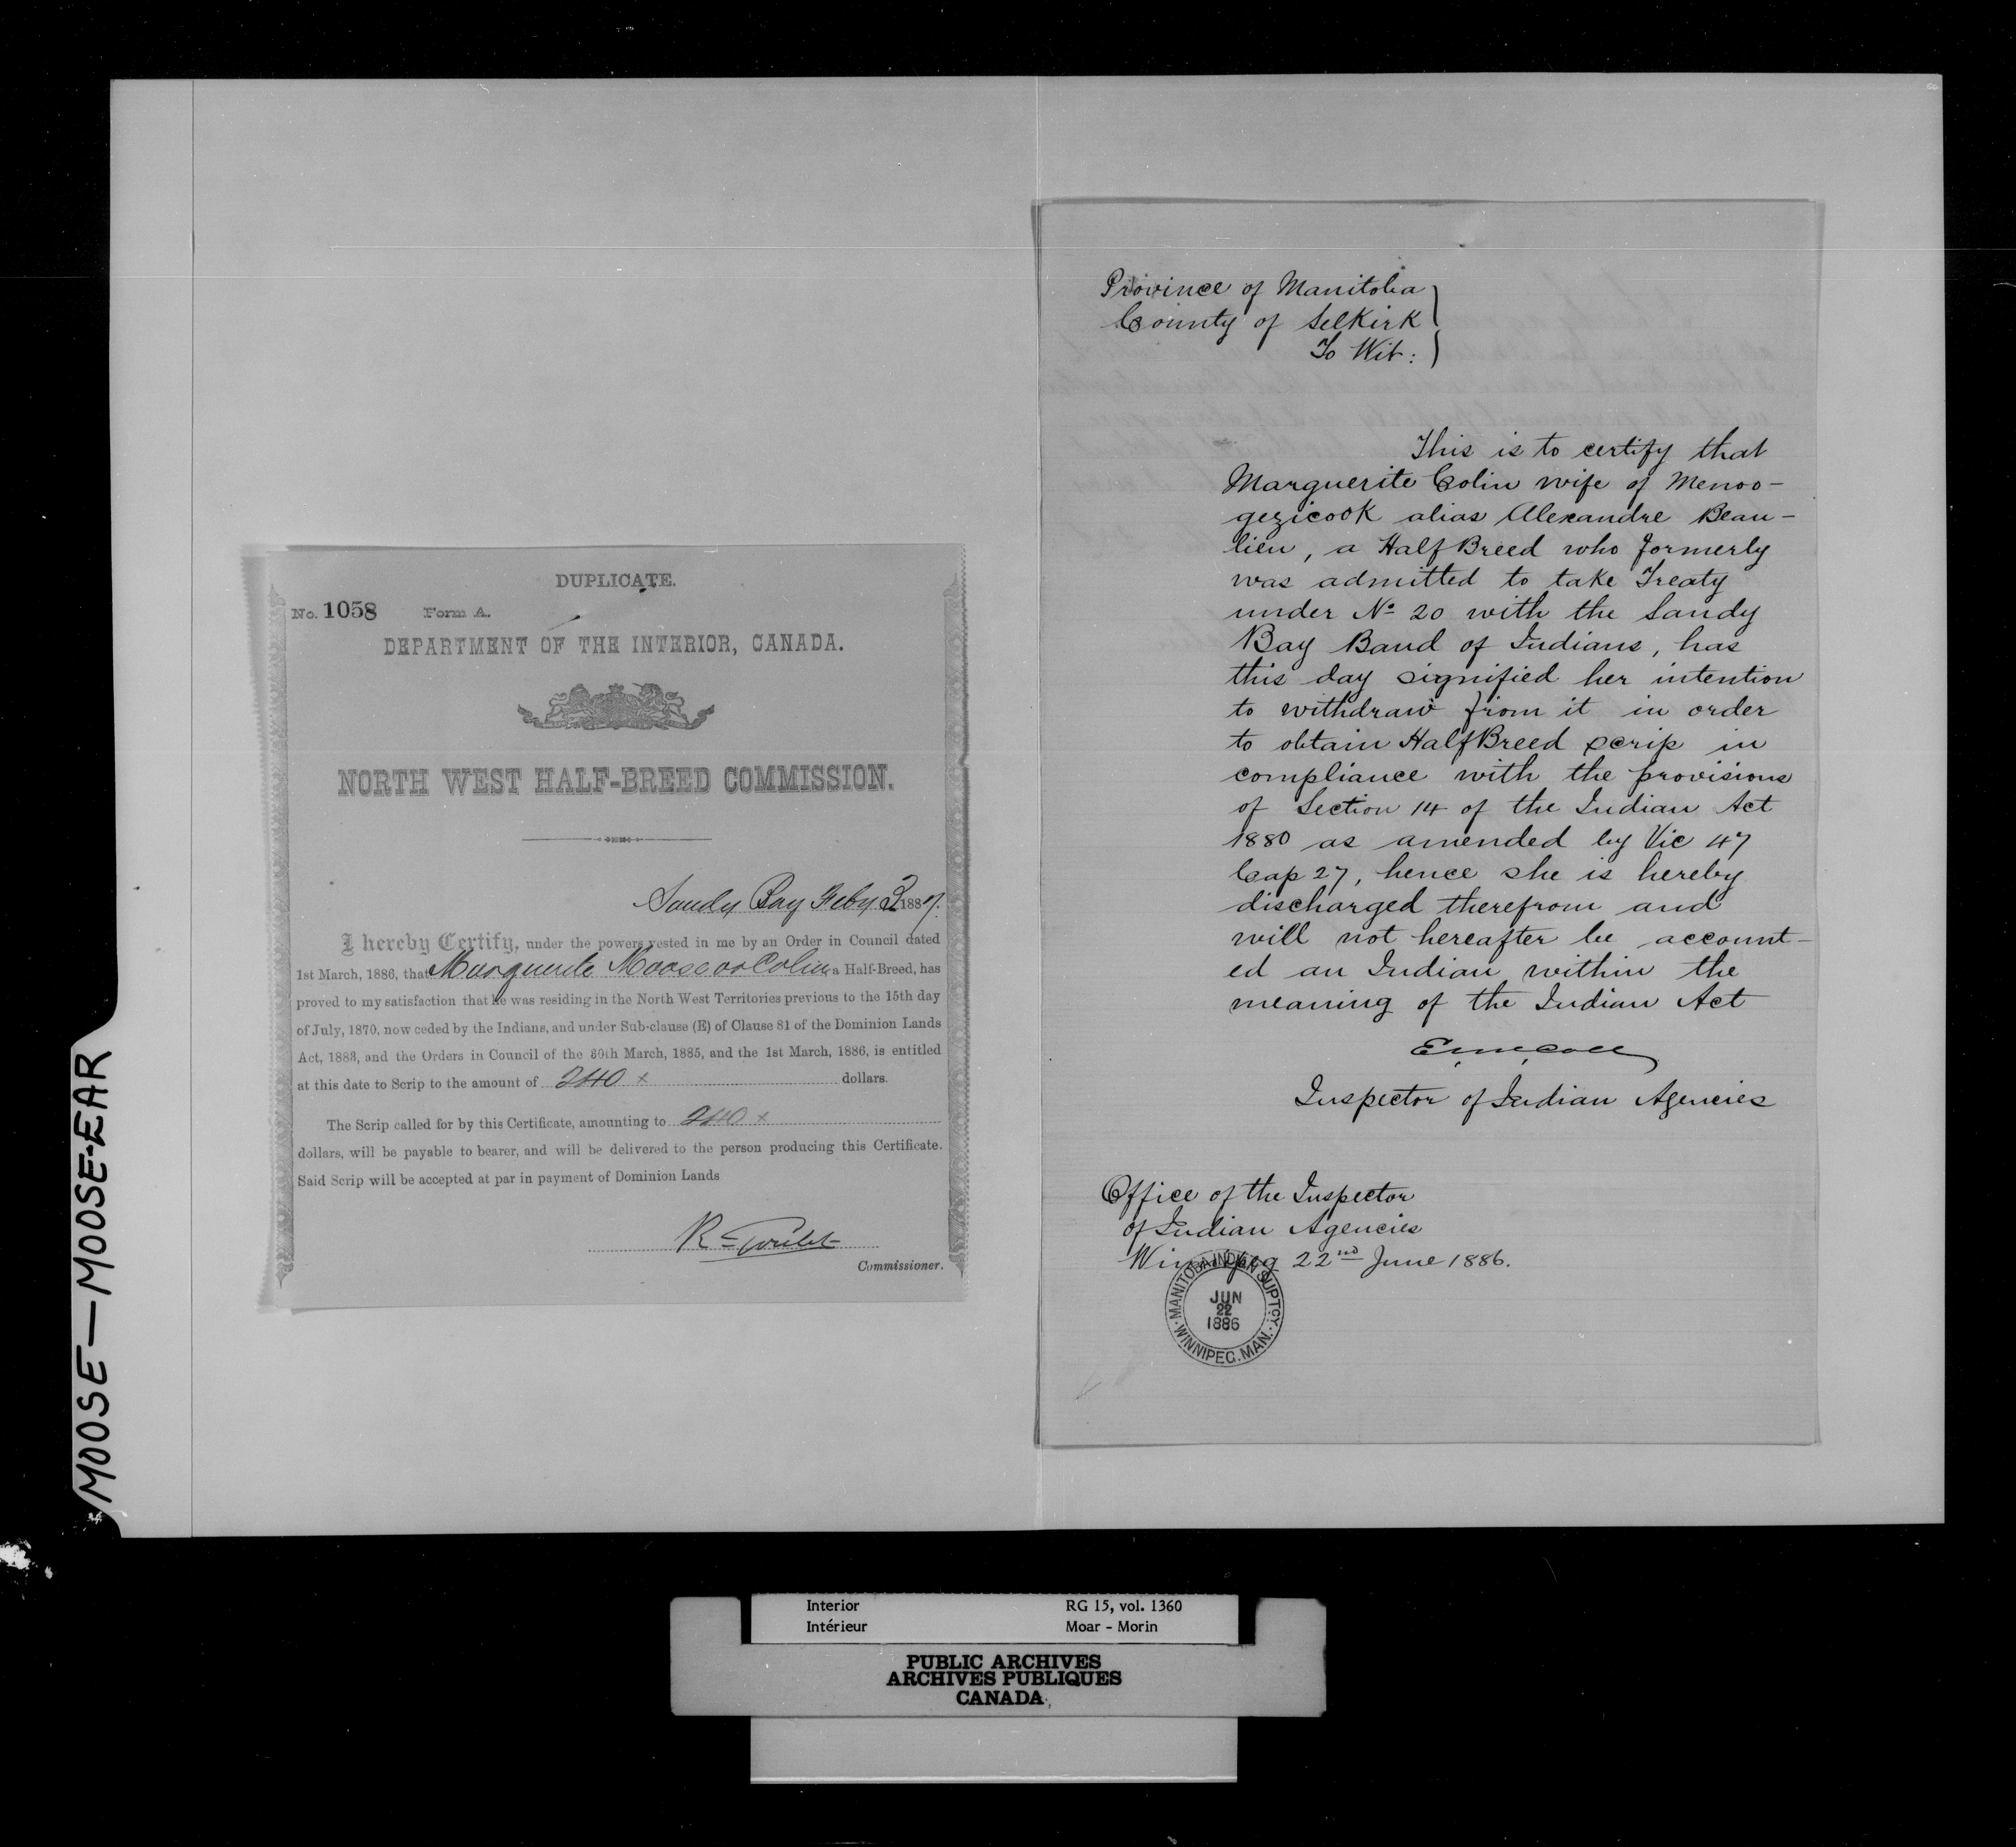 MOOSE—MOOSE-EAR
DUPLICATE.
No. 1058 Form A.
DEPARTMENT OF THE INTERIOR, CANADA.
NORTH WEST HALF-BREED COMMISSION.
Sandy Bay Feby 3 1887.
I hereby Certify, under the powers vested in me by an Order in Council dated
1st March, 1886, that Marguerite Moose or Colin a Half-Breed, has
proved to my satisfaction that he was residing in the North West Territories previous to the 15th day
of July, 1870, now ceded by the Indians, and under Sub-clause (E) of Clause 81 of the Dominion Lands
Act, 1883, and the Orders in Council of the 30th March, 1885, and the 1st March, 1886, is entitled
at this date to Scrip to the amount of 240 x dollars.
The Scrip called for by this Certificate, amounting to 240 x
dollars, will be payable to bearer, and will be delivered to the person producing this Certificate.
Said Scrip will be accepted at par in payment of Dominion Lands
R Goulet
Commissioner.
Province of Manitoba
County of Selkirk
To Wit:
This is to certify that
Marguerite Colin wife of Menoo-
gezicook alias Alexandre Beau-
lieu, a Half Breed who formerly
was admitted to take Treaty
under No 20 with the Sandy
Bay Band of Indians, has
this day signified her intention
to withdraw from it in order
to obtain Half Breed scrip in
compliance with the provisions
of Section 14 of the Indian Act
1880 as amended by Vic 47
Cap 27, hence she is hereby
discharged therefrom and
will not hereafter be account-
ed an Indian within the
meaning of the Indian Act
E. McColl
Inspector of Indian Agencies
Office of the Inspector
of Indian Agencies
Winnipeg 22nd June 1886.
MANITOBA INDIAN SUPTCY.
JUN
22
1886
WINNIPEG. MAN.
Interior RG 15, vol. 1360
Intérieur Moar - Morin
PUBLIC ARCHIVES
ARCHIVES PUBLIQUES
CANADA